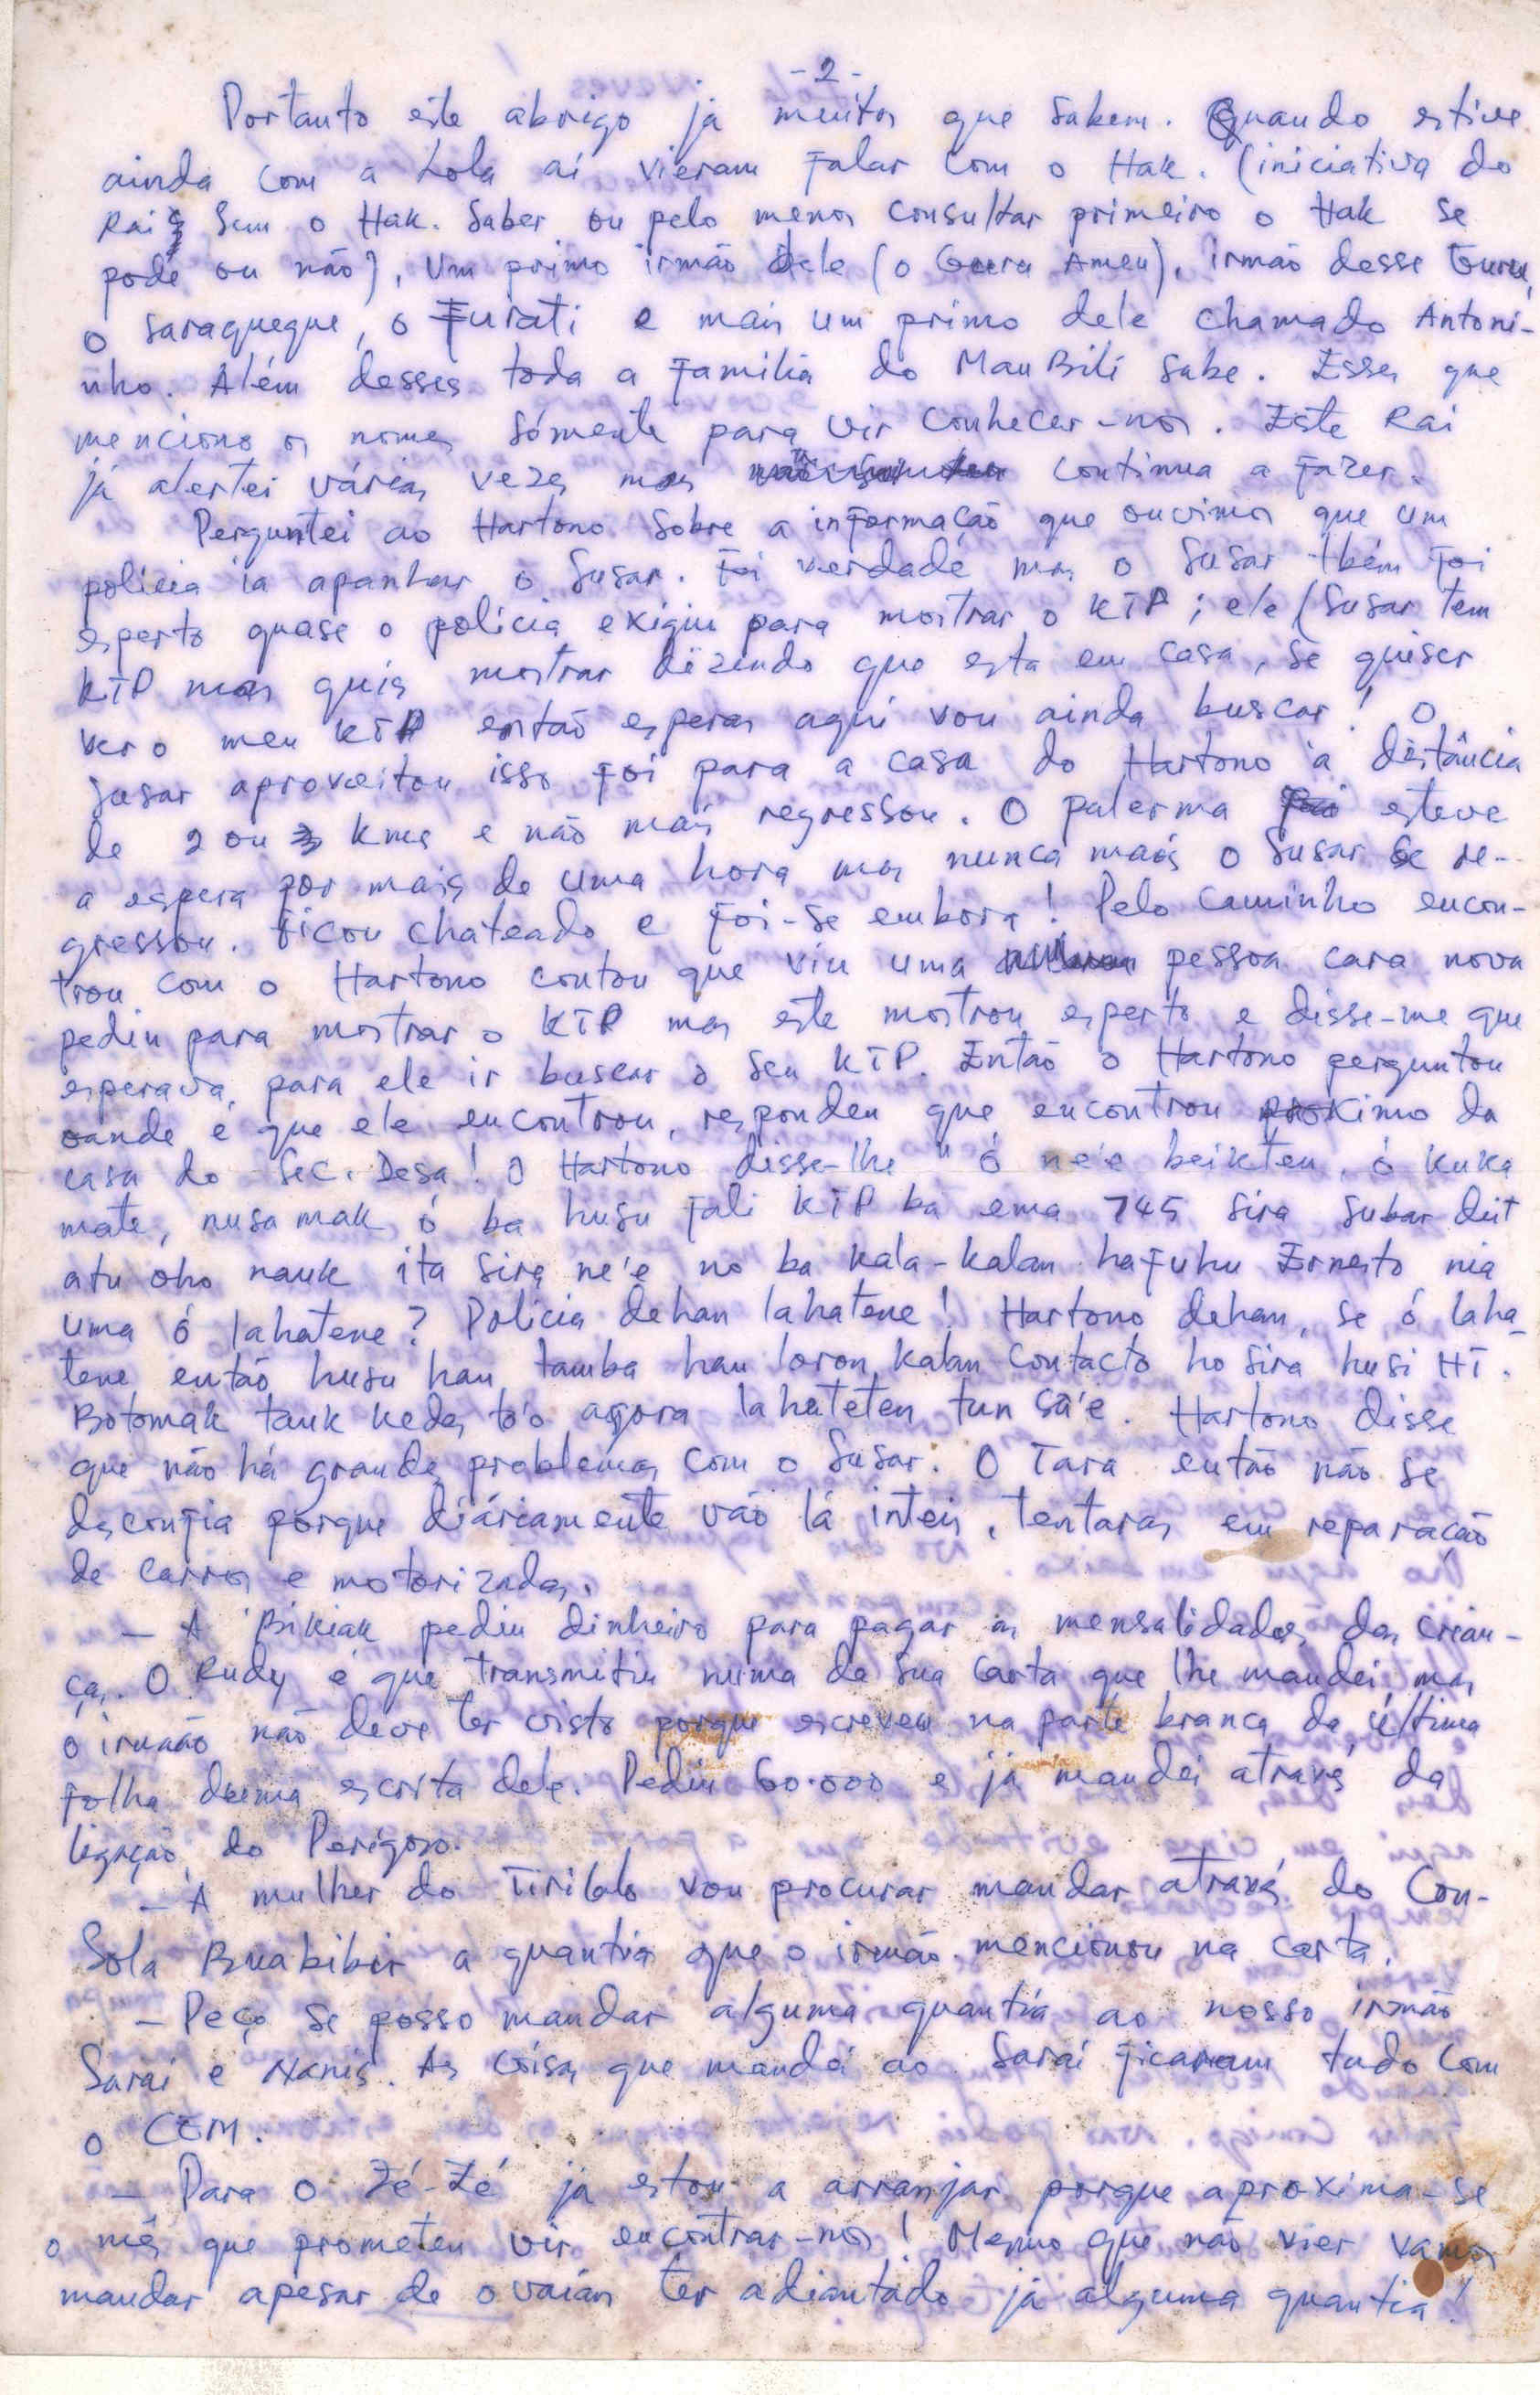 - 2 -
Portanto este abrigo já muitos que sabem. Quando estive
ainda com a Lola aí vieram falar com o Hak. (iniciativa do
Rai sem o Hak. saber ou pelo menos consultar primeiro o Hak se
pode ou não). Um primo irmão dele (o Guru Ameu), irmão desse Guru,
o saraqueque, o Furati e mais um primo dele chamado Antoni-
nho. Além desses toda a familia do Mau Bili sabe. Esses que
menciono os nomes sómente para vir conhecer-nos. Este Rai
já alertei várias vezes mas continua a fazer.
Perguntei ao Hartono sobre a informação que ouvimos que um
policia ia apanhar o Susar. Foi verdade mas o Susar tbém foi
esperto quase o policia exigiu para mostrar o KTP; ele (Susar tem
KTP mas quis mostrar dizendo que esta em casa, se quiser
ver o meu KTP então esperas aqui vou ainda buscar! O
Susar aproveitou isso foi para a casa do Hartono à distância
de 2 ou 3 kms e não mais regressou. O palerma esteve
a espera por mais de uma hora mas nunca mais o Susar se re-
gressou. Ficou chateado e foi-se embora! Pelo caminho encon-
trou com o Hartono contou que viu uma pessoa cara nova
pediu para mostrar o KTP mas este mostrou esperto e disse-me que
esperava, para ele ir buscar o seu KTP. Então o Hartono perguntou
oande é que ele encontrou, respondeu que encontrou proximo da
casa do Sec. Desa! O Hartono disse-lhe "ó ne'e beikten, ó kuka
mate, nusa mak ó ba husu fali KTP ba ema 745 sira subar dit
atu oho nauk ita sira ne'e no ba kala-kalan hafuhu Ernesto nia
uma ó lahatene? Policia dehan lahatene! Hartono dehan, se ó laha-
tene então husu hau tamba hau loron kalan contacto ho sira husi HT.
Botomak tauk kedas to'o agora lahateten tun sa'e. Hartono disse
que não há grandes problemas com o Susar. O Tara então não se
desconfia porque diáriamente vão lá inteis, tentaras em reparação
de carros e motorizadas.
- A Bikiak pediu dinheiro para pagar as mensalidades das crian-
ças. O Rudy é que transmitiu numa de sua carta que lhe mandei mas
o irmão não deve ter visto porque escreveu na parte branca da última
folha duma escrita dele. Pediu 60.000 e já mandei através da
ligação do Perigoso.
- A mulher do Tirilolo vou procurar mandar através do Con-
sola Buabibir a quantia que o irmão mencionou na carta.
- Peço se posso mandar alguma quantia ao nosso irmão
Sarai e Nanis. As coisas que mandei ao Sarai ficaram tudo com
o COM.
- Para o Zé-Zé já estou a arranjar porque aproxima-se
o mês que prometeu vir encontrar-nos! Mesmo que não vier vamos
mandar apesar de ovaian ter adiantado já alguma quantia!